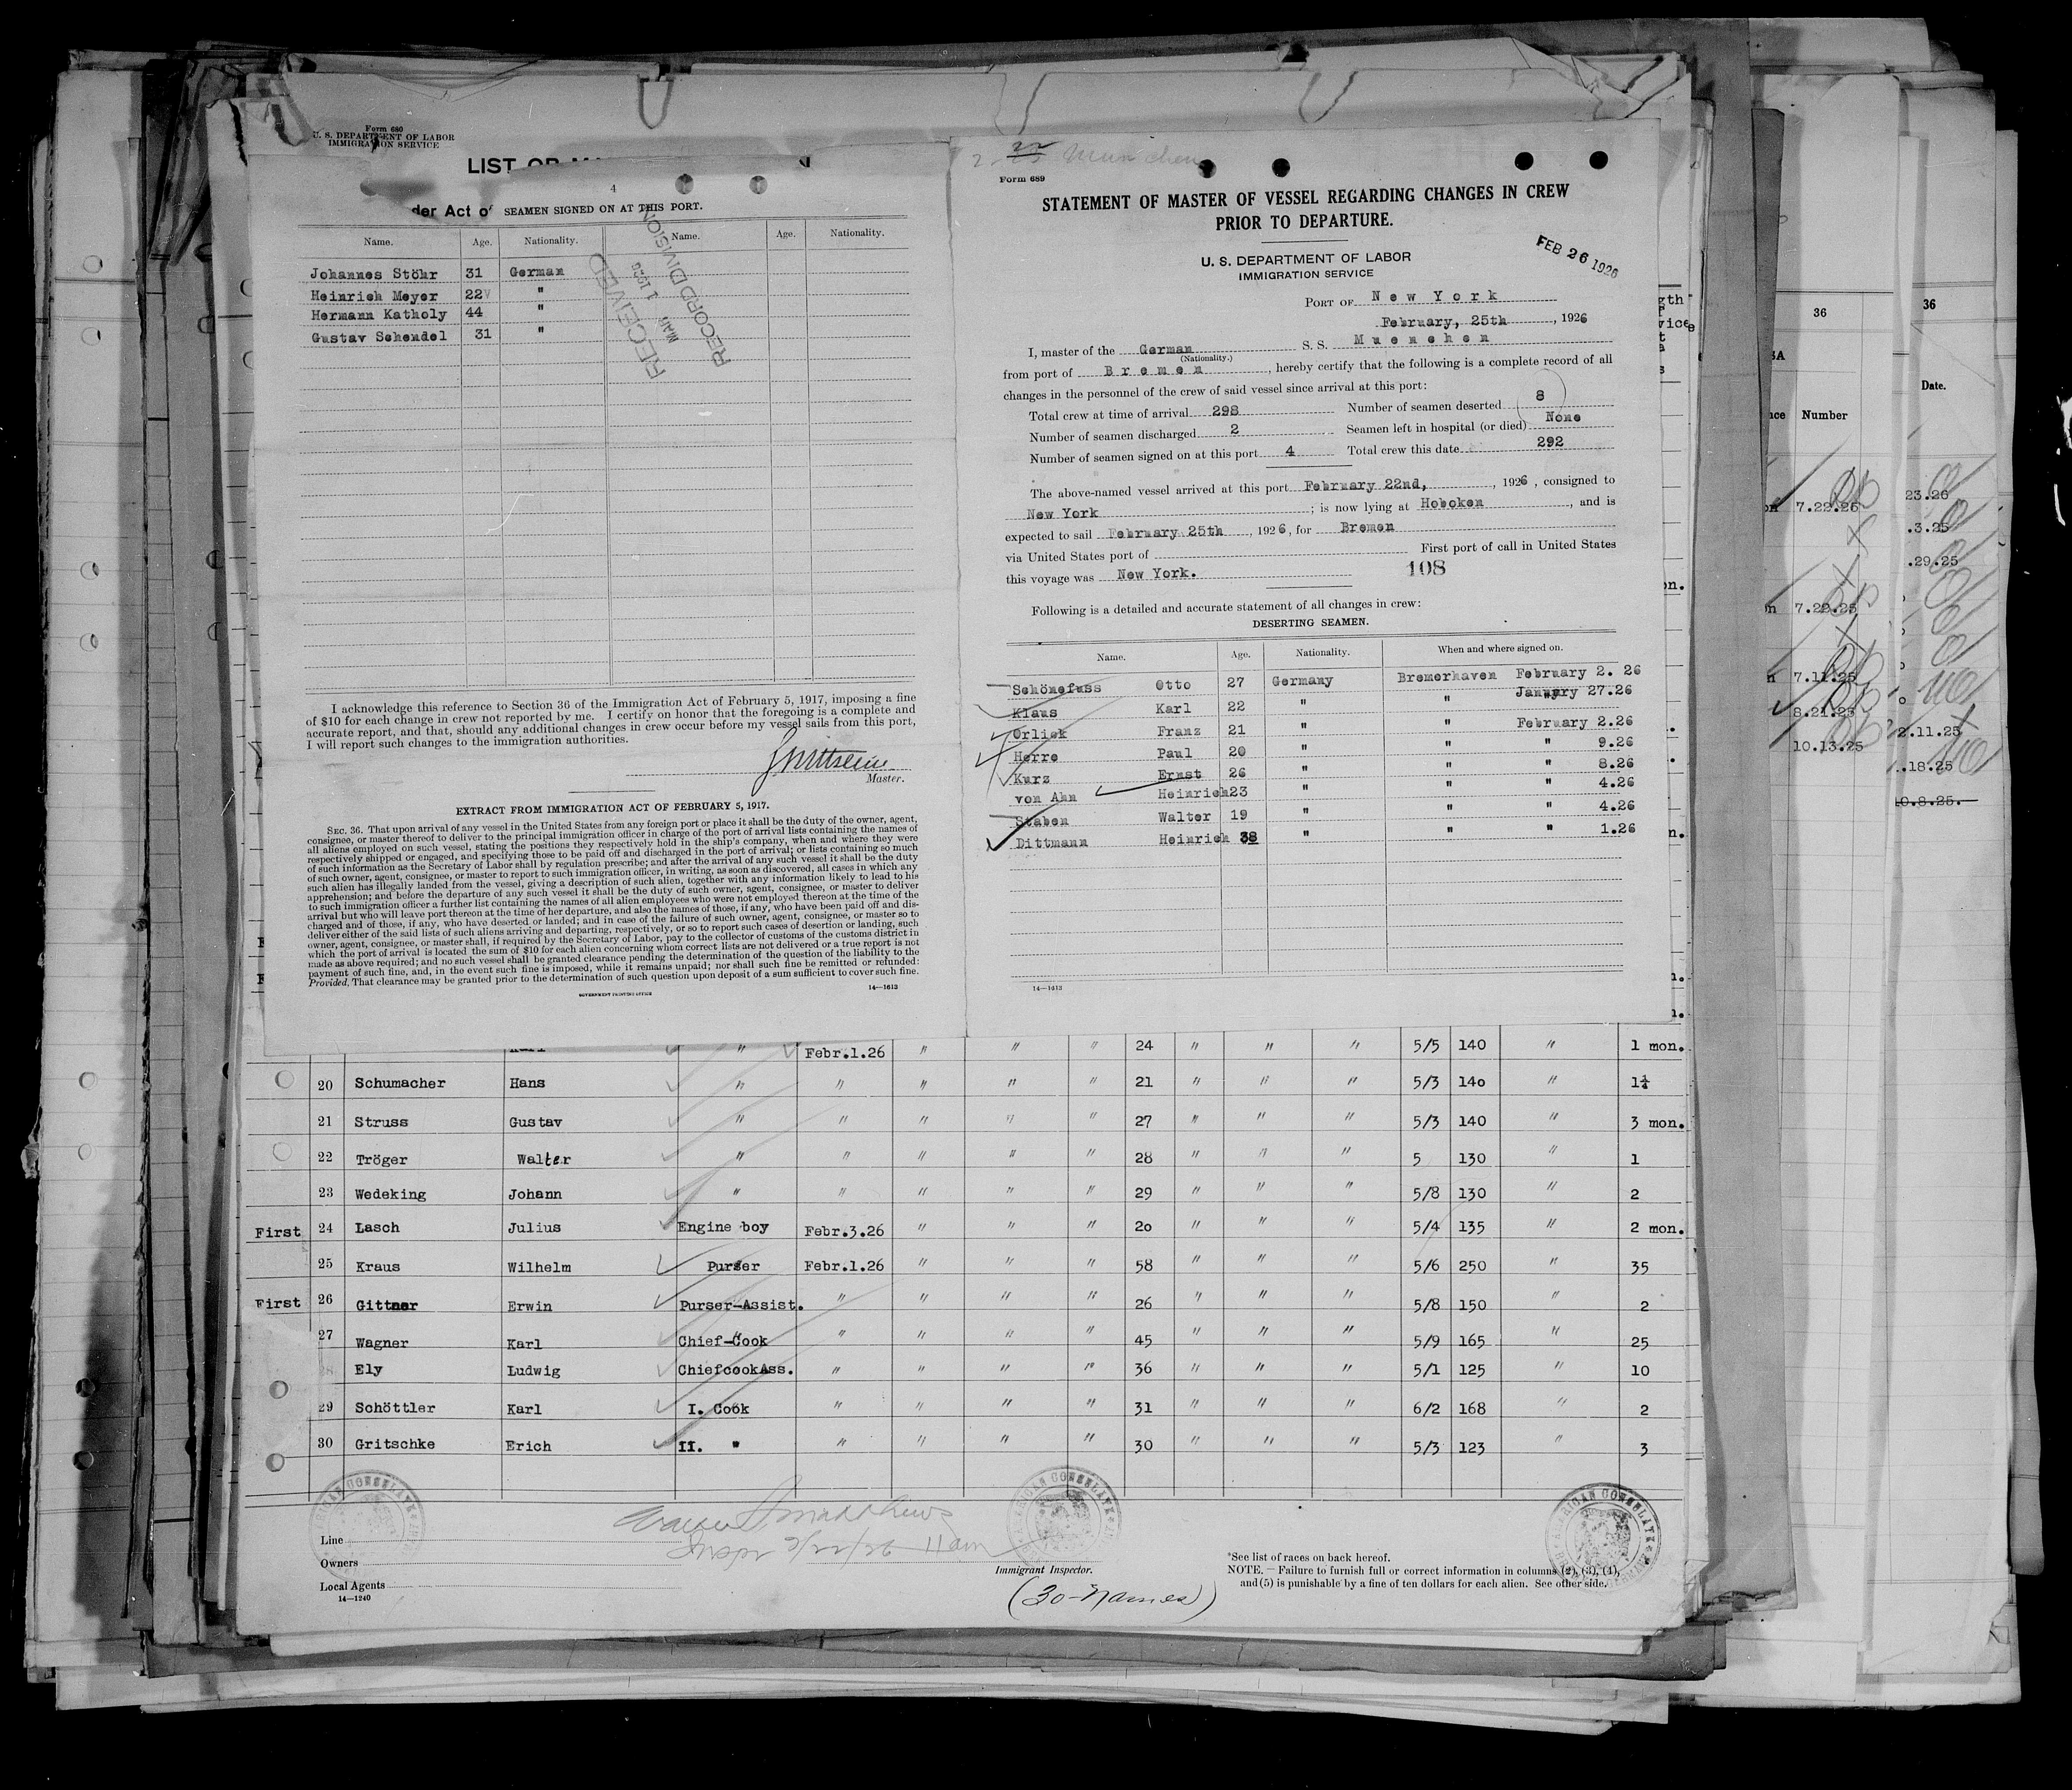 Form 680
U. S. DEPARTMENT OF LABOR
IMMIGRATION SERVICE
LIST OR
4
der Act of SEAMEN SIGNED ON AT THIS PORT.
Name. Age. Nationality. Name. Age. Nationality.
Johannes Stöhr 31 German
Heinrich Meyer 22 "
Hermann Katholy 44 "
Gustav Schendel 31 "
RECEIVED
MAR 1 1926
RECORD DIVISION
I acknowledge this reference to Section 36 of the Immigration Act of February 5, 1917, imposing a fine
of $10 for each change in crew not reported by me. I certify on honor that the foregoing is a complete and
accurate report, and that, should any additional changes in crew occur before my vessel sails from this port,
I will report such changes to the immigration authorities.
Master.
EXTRACT FROM IMMIGRATION ACT OF FEBRUARY 5, 1917.
SEC. 36. That upon arrival of any vessel in the United States from any foreign port or place it shall be the duty of the owner, agent,
consignee, or master thereof to deliver to the principal immigration officer in charge of the port of arrival lists containing the names of
all aliens employed on such vessel, stating the positions they respectively hold in the ship's company, when and where they were
respectively shipped or engaged, and specifying those to be paid off and discharged in the port of arrival; or lists containing so much
of such information as the Secretary of Labor shall by regulation prescribe; and after the arrival of any such vessel it shall be the duty
of such owner, agent, consignee, or master to report to such immigration officer, in writing, as soon as discovered, all cases in which any
such alien has illegally landed from the vessel, giving a description of such alien, together with any information likely to lead to his
apprehension; and before the departure of any such vessel it shall be the duty of such owner, agent, consignee, or master to deliver
to such immigration officer a further list containing the names of all alien employees who were not employed thereon at the time of the
arrival but who will leave port thereon at the time of her departure, and also the names of those, if any, who have been paid off and dis-
charged and of those, if any, who have deserted or landed; and in case of the failure of such owner, agent, consignee, or master so to
deliver either of the said lists of such aliens arriving and departing, respectively, or so to report such cases of desertion or landing, such
owner, agent, consignee, or master shall, if required by the Secretary of Labor, pay to the collector of customs of the customs district in
which the port of arrival is located the sum of $10 for each alien concerning whom correct lists are not delivered or a true report is not
made as above required; and no such vessel shall be granted clearance pending the determination of the question of the liability to the
payment of such fine, and, in the event such fine is imposed, while it remains unpaid; nor shall such fine be remitted or refunded:
Provided, That clearance may be granted prior to the determination of such question upon deposit of a sum sufficient to cover such fine.
GOVERNMENT PRINTING OFFICE 14—1613
Munchen
Form 689
STATEMENT OF MASTER OF VESSEL REGARDING CHANGES IN CREW
PRIOR TO DEPARTURE.
U. S. DEPARTMENT OF LABOR
IMMIGRATION SERVICE
FEB 26 1926
PORT OF New York
February, 25th, 1926
I, master of the German S. S. Muenchen
(Nationality.)
from port of Bremen, hereby certify that the following is a complete record of all
changes in the personnel of the crew of said vessel since arrival at this port:
Total crew at time of arrival 298 Number of seamen deserted 8
Number of seamen discharged 2 Seamen left in hospital (or died) None
Number of seamen signed on at this port 4 Total crew this date 292
The above-named vessel arrived at this port February 22nd, , 1926, consigned to
New York ; is now lying at Hoboken, and is
expected to sail February 25th, 1926, for Bremen
via United States port of First port of call in United States
this voyage was New York. 108
Following is a detailed and accurate statement of all changes in crew:
DESERTING SEAMEN.
Name. Age. Nationality. When and where signed on.
Schönefuss Otto 27 Germany Bremerhaven February 2. 26
Klaus Karl 22 " " January 27.26
Orliek Franz 21 " " February 2.26
Herre Paul 20 " " " 9.26
Kurz Ernst 26 " " " 8.26
von Ahn Heinrich 23 " " " 4.26
Staben Walter 19 " " " 4.26
Dittmann Heinrich 38 " " " 1.26
14—1613
" Febr.1.26 " " " 24 " " " 5/5 140 " 1 mon.
20 Schumacher Hans " " " " " 21 " " " 5/3 140 " 1¼
21 Struss Gustav " " " " " 27 " " " 5/3 140 " 3 mon.
22 Tröger Walter " " " " " 28 " " " 5 130 " 1
23 Wedeking Johann " " " " " 29 " " " 5/8 130 " 2
First 24 Lasch Julius Engine boy Febr.3.26 " " " 20 " " " 5/4 135 " 2 mon.
25 Kraus Wilhelm Purser Febr.1.26 " " " 58 " " " 5/6 250 " 35
First 26 Gittner Erwin Purser-Assist. " " " " 26 " " " 5/8 150 " 2
27 Wagner Karl Chief-Cook " " " " 45 " " " 5/9 165 " 25
28 Ely Ludwig ChiefcookAss. " " " " 36 " " " 5/1 125 " 10
29 Schöttler Karl I. Cook " " " " 31 " " " 6/2 168 " 2
30 Gritschke Erich II. " " " " " 30 " " " 5/3 123 " 3
AMERICAN CONSULATE
Line
Owners
Local Agents
14—1240
Immigrant Inspector.
(30-Names)
*See list of races on back hereof.
NOTE. — Failure to furnish full or correct information in columns (2), (3), (4),
and (5) is punishable by a fine of ten dollars for each alien. See other side.
36
Number
7.22.26
7.22.25
7.11.25
8.21.25
10.13.25
36
Date.
23.26
.3.25
.29.25
2.11.25
.18.25
10.8.25.